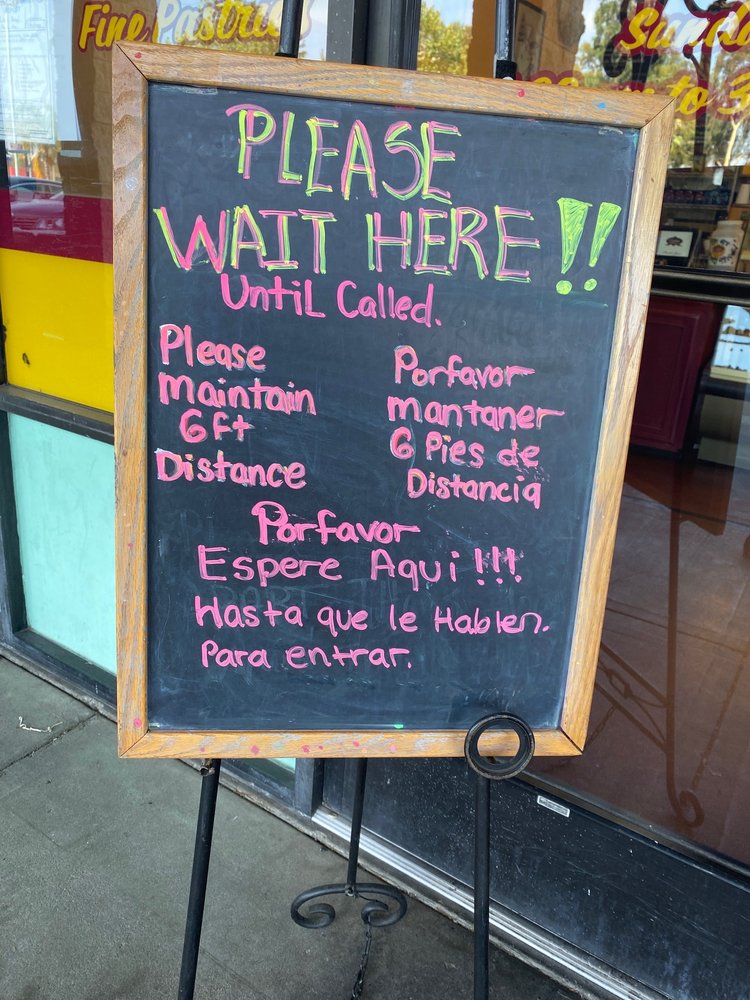 Fine Pastries
Sunda
to 3
PLEASE
WAIT HERE !!
UntiL Called.
Please
maintain
6 Ft
Distance
Porfavor
mantaner
6 Pies de
Distancia
Porfavor
Espere Aqui!!!
Hasta que le Hablen.
Para entrar.